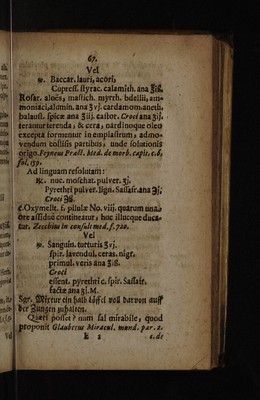 67.
Vel
℞. Baccar. lauri, acori,
Cupress. styrac. calamith. ana ℥iß.
Rosar. aloës, mastich. myrrh. bdellii, am-
moniaci, alumin. ana ʒvj. cardamom. aneth.
balaust. spicæ ana ʒiij. castor. Croci ana ʒij.
terantur terenda, & cera, nardinoque oleo
excepta formentur in emplastrum, admo-
vendum collisis partibus, unde solutionis
origo. Feynens Pract. Med. de morb. capit. c. d.
fol. 159.
Ad linguam resolutam:
℞. nuc. moschat. pulver. ʒj.
Pyrethri pulver. lign. Sassafr. ana ℈j.
Croci ℈ß.
c. Oxymelit. f. pilulæ No. viij. quarum una
ore assiduè contineatur, huc illucque duca-
tur. Zecchius in consult. med. f. 720.
Vel
℞. Sanguin. turturis ʒvj.
spir. lavendul. ceras. nigr.
primul. veris ana ℥iß.
Croci
essent. pyrethri c. spir. Sassafr.
factæ ana ʒi. M.
Sgr. Mixtur ein halb Löffel voll darvon auff
der Zungen zuhalten.
Quæri posset? num sal mirabile, quod
proponit Glauberus Miracul. mund. par. 2.
E 2 c. de